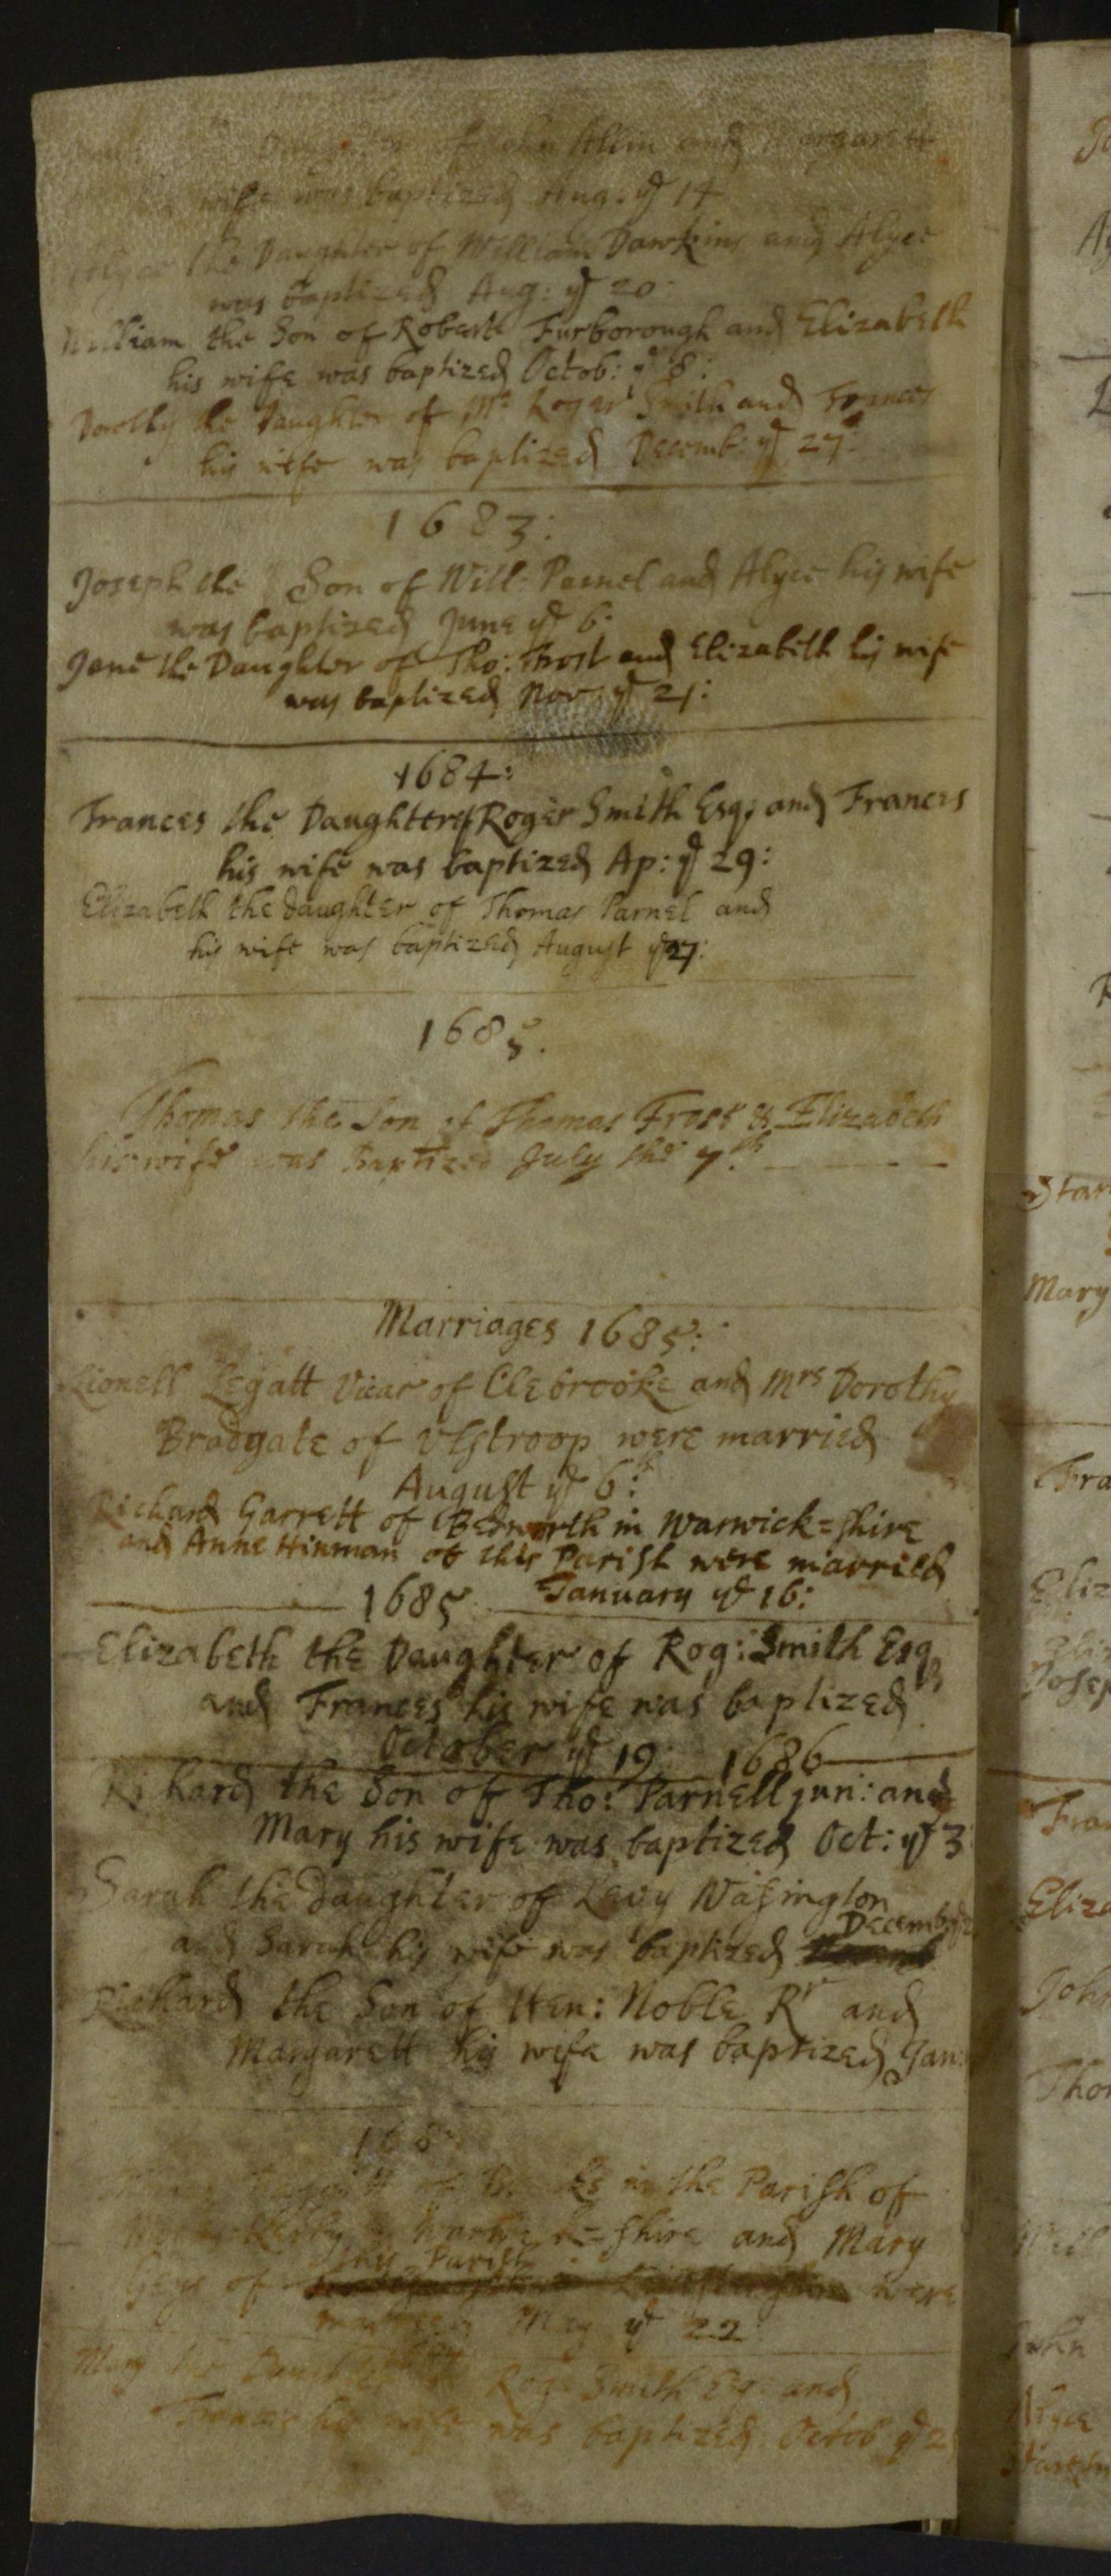 Daughter of John Alim and Margarett
wife was baptized Aug: ye 14
Alyce the Daughter of William Dawkins and Alyce
was baptized Aug: ye 20
William the Son of Roberte Furborough and Elizabeth
his wife was baptized Octob: ye 8:
Dorothy the Daughter of Mr Roger Smith and Frances
his wife was baptized Decemb: ye 27:
1683:
Joseph the Son of Will: Parnel and Alyce his wife
was baptized June ye 6:
Jane the Daughter of Tho: Frost and Elizabeth his wife
was baptized Nov: ye 21:
1684:
Frances the Daughter of Roger Smith Esq: and Frances
his wife was baptized Ap: ye 29:
Elizabeth the daughter of Thomas Parnel and
his wife was baptized August ye 27:
1685.
Thomas the Son of Thomas Frost & Elizabeth
his wife was Baptized July the 7th
Marriages 1685:
Lionell Legatt Vicar of Clebrooke and Mrs Dorothy
Bradgate of Ulstroop were married
August ye 6th:
Richard Garrett of Bedworth in Warwick=shire
and Anne Hinman of this Parish were married
1685 January ye 16:
Elizabeth the Daughter of Rog: Smith Esq
and Frances his wife was baptized
October ye 19: 1686
Richard the Son of Tho: Parnell jun: and
Mary his wife was baptized Oct: ye 3
Sarah the daughter of Levy Wasington
and Sarah his wife was baptized Decemb:
Richard the Son of Hen: Noble Rr and
Margarett his wife was baptized Jan:
168
of in the Parish of
Warwick=shire and Mary
of this Parish were
married May ye 22
Mary the Daughter of Rog: Smith Esq: and
Frances his wife was baptized Octob ye 2